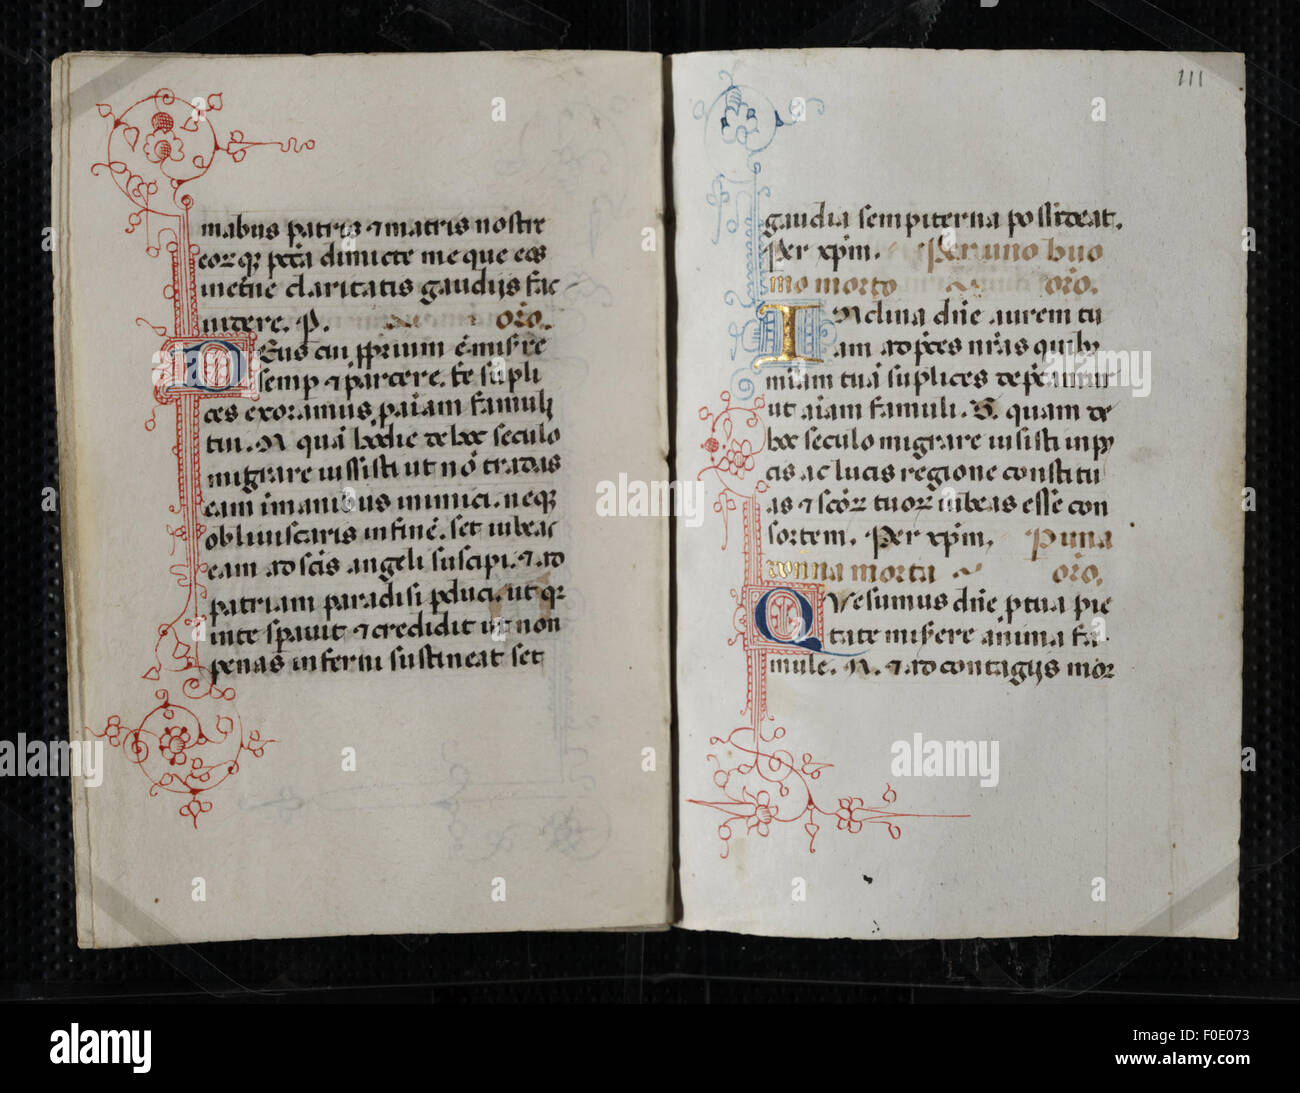 mabus patris & matris nostre
eorq; pctā dimicte meque eos
ineterne claritatis gaudijs fac
uidere. P. orō.
DEus cui pprium ē misere
semp & parcere. te supli
ces exoramus, p aīam famulj
tui. N quā hodie de hoc seculo
migrare iussisti ut nō tradas
eam in manibus inimici. neq;
obliuiscaris in finē. set iubeas
eam ad scīs angeli suscipi. & ad
patriam paradisi pduci. ut q;
in te spauit & credidit ut non
penas inferni sustineat set
111
gaudia sempiterna possideat.
Per xp̄m. Per uno huo
mo morto orō.
INclina dn̄e aurem tu
am ad p̄ces nr̄as quib;
mīam tuā suplices dep̄camur
ut aīam famuli. S. quam de
hoc seculo migrare iusisti in p
cis ac lucis regione constitu
as & scōr tuor iubeas esse con
sortem. Per xp̄m. P una
donna morta orō.
QVesumus dn̄e p tua pie
tate miserere anima fa
mule. N. & ad contagijs mor
alamy
Image ID: F0E073
www.alamy.com